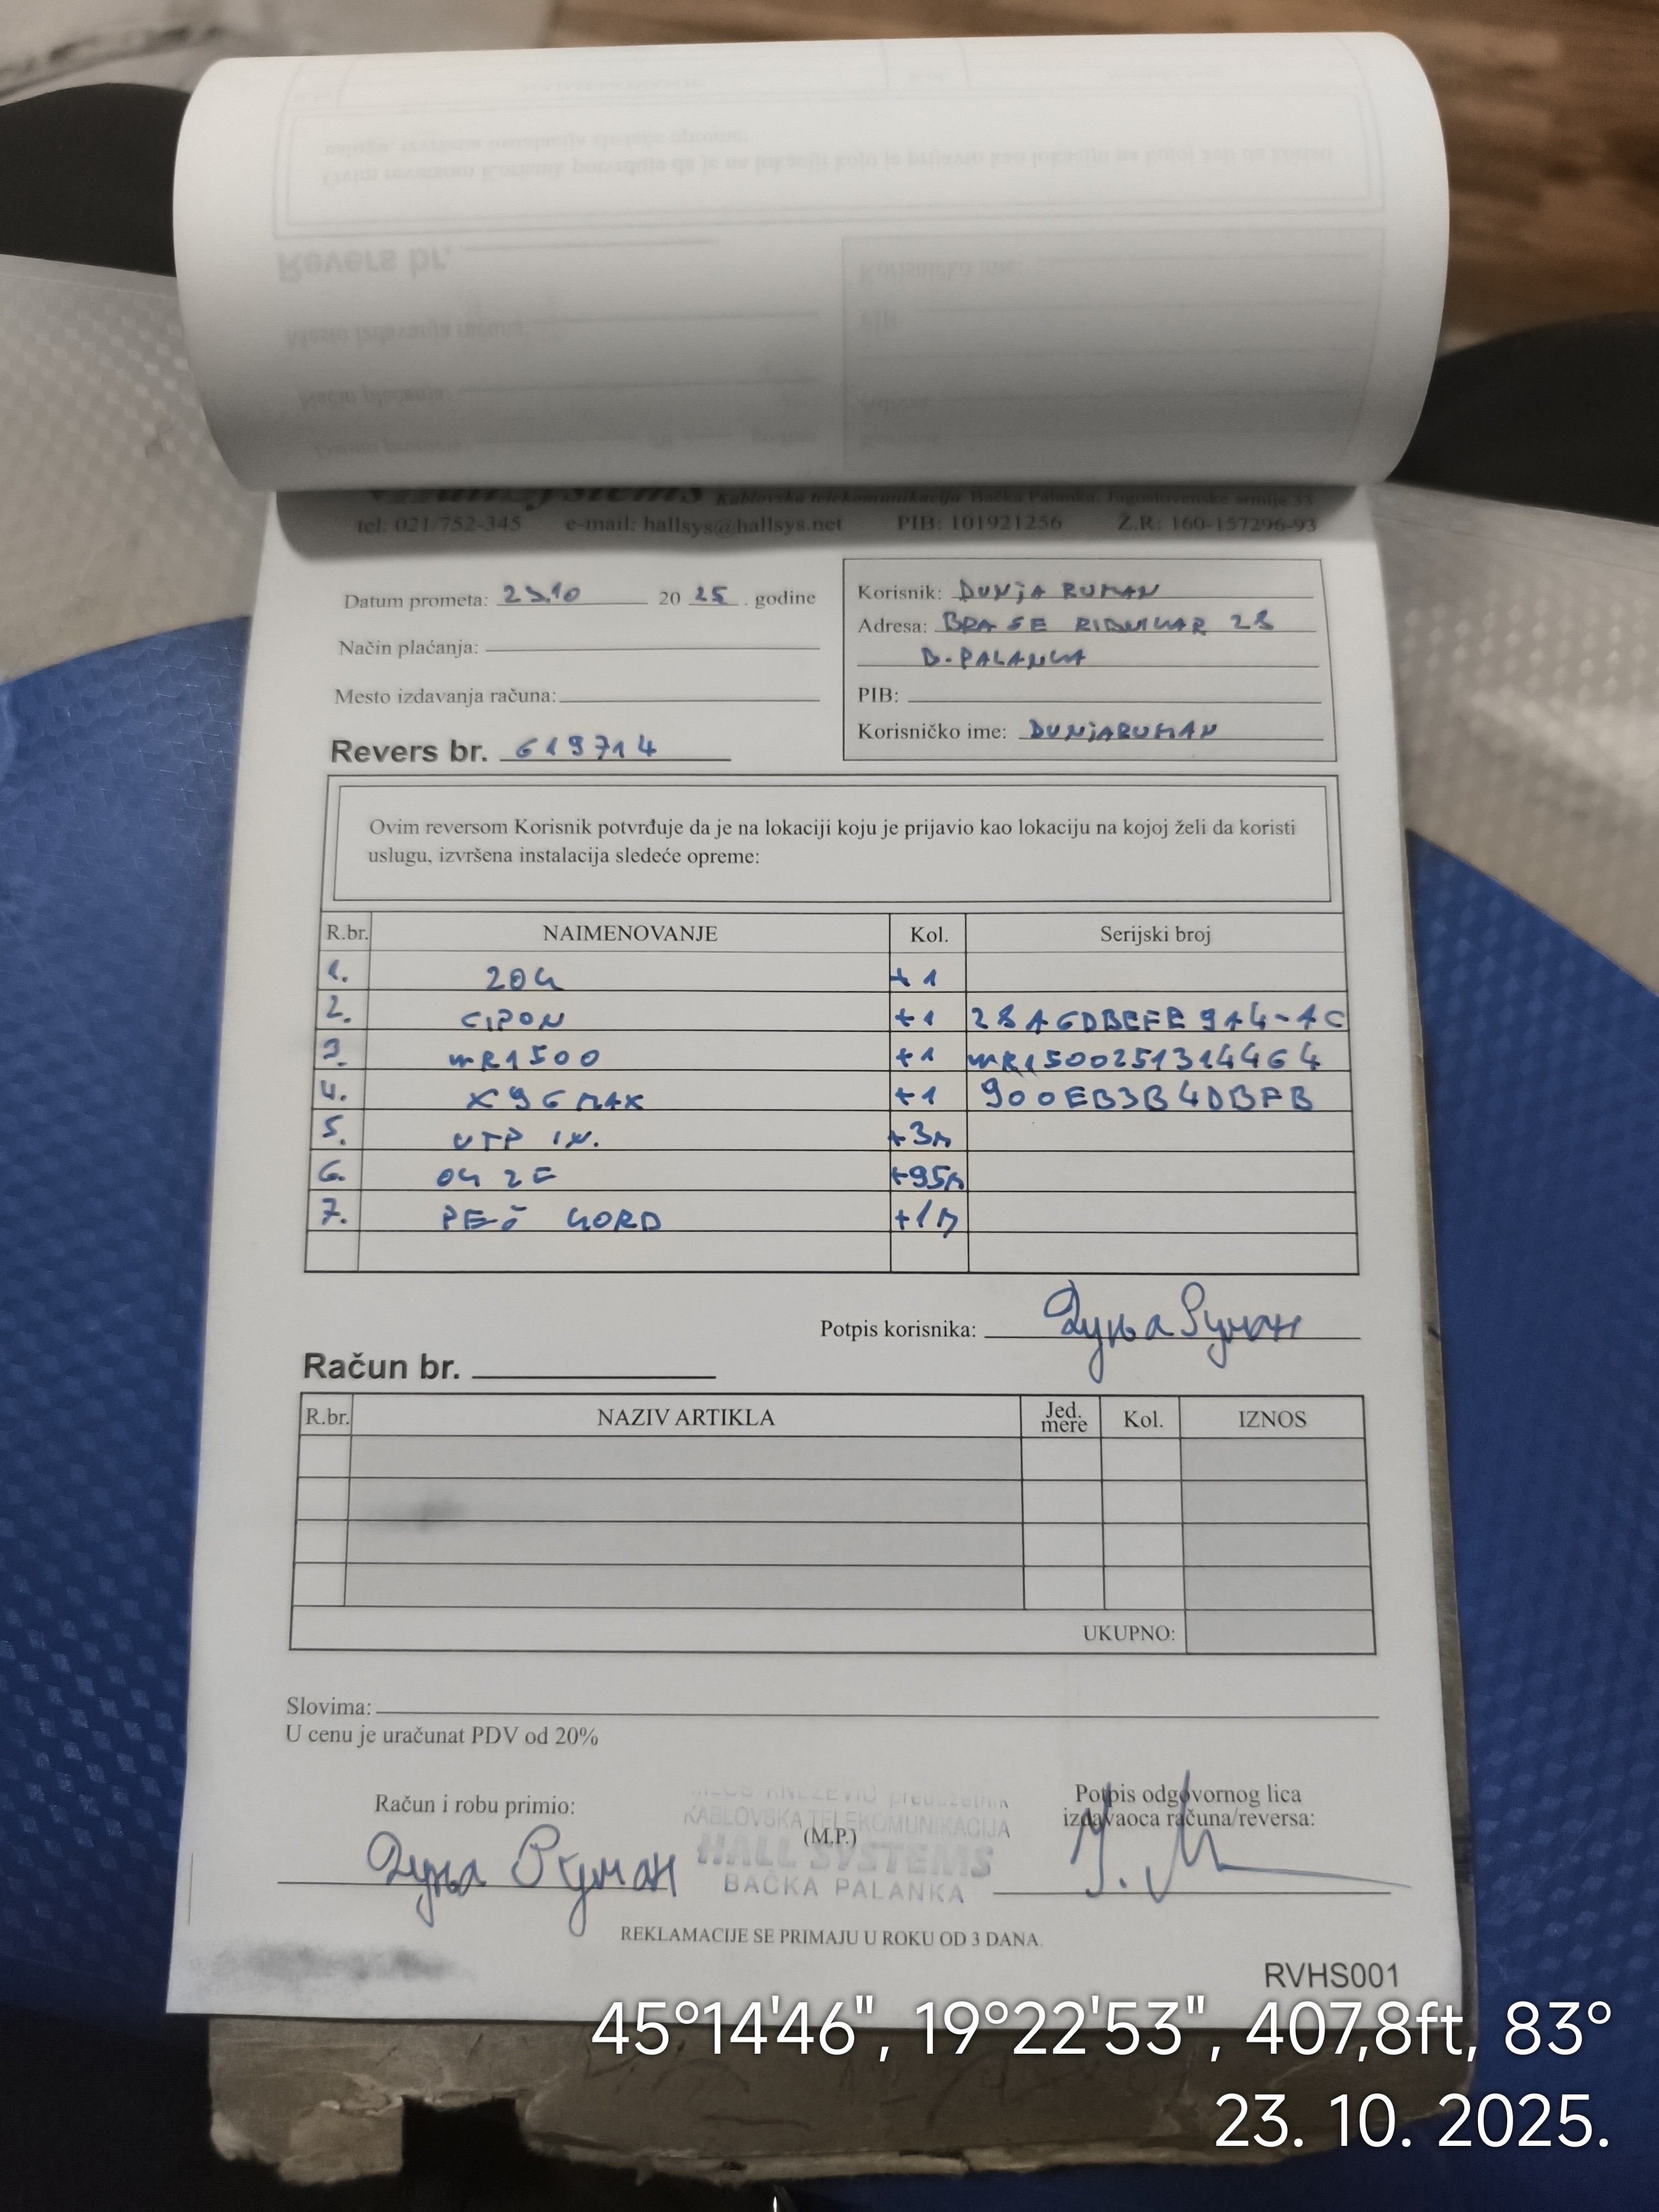 Systems Kablovska telekomunikacija Bačka Palanka, Jugoslovenske armije 33
tel: 021/752-345 e-mail: hallsys@hallsys.net PIB: 101921256 Ž.R: 160-157296-93
Datum prometa: 23.10 20 25 . godine
Način plaćanja:
Mesto izdavanja računa:
Revers br. 619714
Korisnik: DUNjA RUMAN
Adresa: BRAĆE RIBNIKAR 28
B. PALANKA
PIB:
Korisničko ime: DUNjARUMAN
Ovim reversom Korisnik potvrđuje da je na lokaciji koju je prijavio kao lokaciju na kojoj želi da koristi
uslugu, izvršena instalacija sledeće opreme:
R.br. NAIMENOVANJE Kol. Serijski broj
1. ZOK +1
2. GIPON +1
3. mR1500 +1 mR1500251314464
4. X96 MAX +1 900EB3B4DBFB
5. UTP +3m
6. OK 2F +95m
7. PEČ KORD +1m
Potpis korisnika: Дуња Руман
Račun br.
R.br. NAZIV ARTIKLA Jed. mere Kol. IZNOS
UKUPNO:
Slovima:
U cenu je uračunat PDV od 20%
Račun i robu primio:
Дуња Руман
MILOŠ KNEŽEVIĆ preduzetnik
KABLOVSKA TELEKOMUNIKACIJA
(M.P.)
HALL SYSTEMS
BAČKA PALANKA
Potpis odgovornog lica
izdavaoca računa/reversa:
REKLAMACIJE SE PRIMAJU U ROKU OD 3 DANA.
RVHS001
45°14'46", 19°22'53", 407,8ft, 83°
23. 10. 2025.